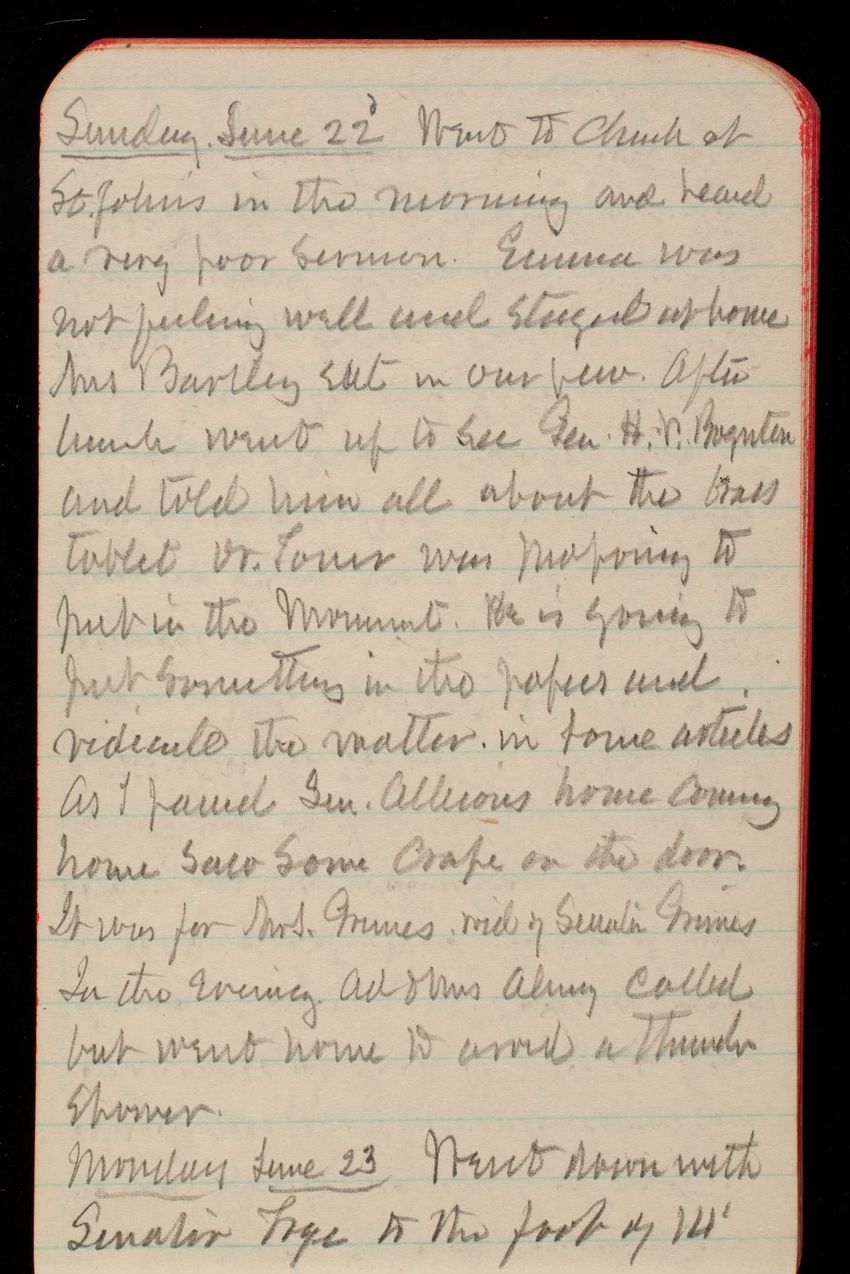 Sunday. June 22d Went to Church at
St. John's in the morning and heard
a very poor sermon. Emma was
not feeling well and stayed at home
Mrs Bartley sat in our pew. After
lunch went up to see Gen. H. V. Boynton
and told him all about the brass
tablet Dr. Toner was proposing to
put in the Monument. He is going to
put something in the papers and
ridicule the matter. in some articles
As I passed Gen. home coming
home saw some Crape on the door.
It was for Mrs. Grimes. wid of Senator Grimes
In the Evening. Ad & Mrs Almy called
but went home to avoid a Thunder
Shower.
Monday June 23 Went down with
Senator Frye to the foot of 14'